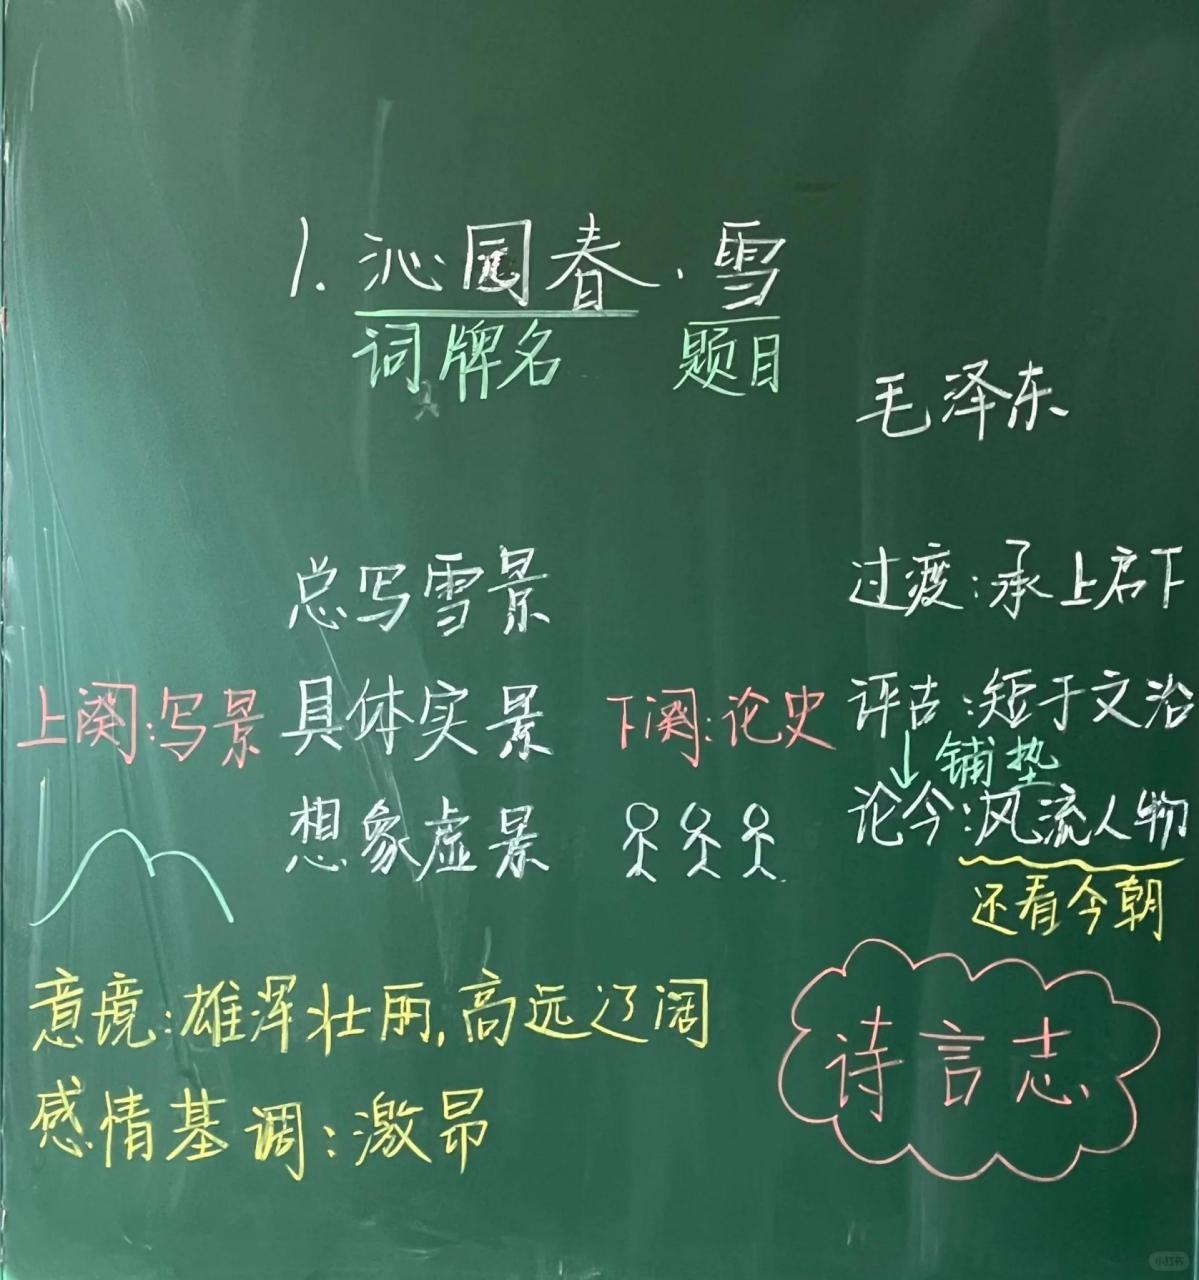 1.沁园春·雪
词牌名 题目
毛泽东
总写雪景
上阕:写景 具体实景
想象虚景
下阕:论史
过渡:承上启下
评古:短于文治
铺垫
论今:风流人物
还看今朝
意境:雄浑壮丽,高远辽阔
感情基调:激昂
诗言志
小红书